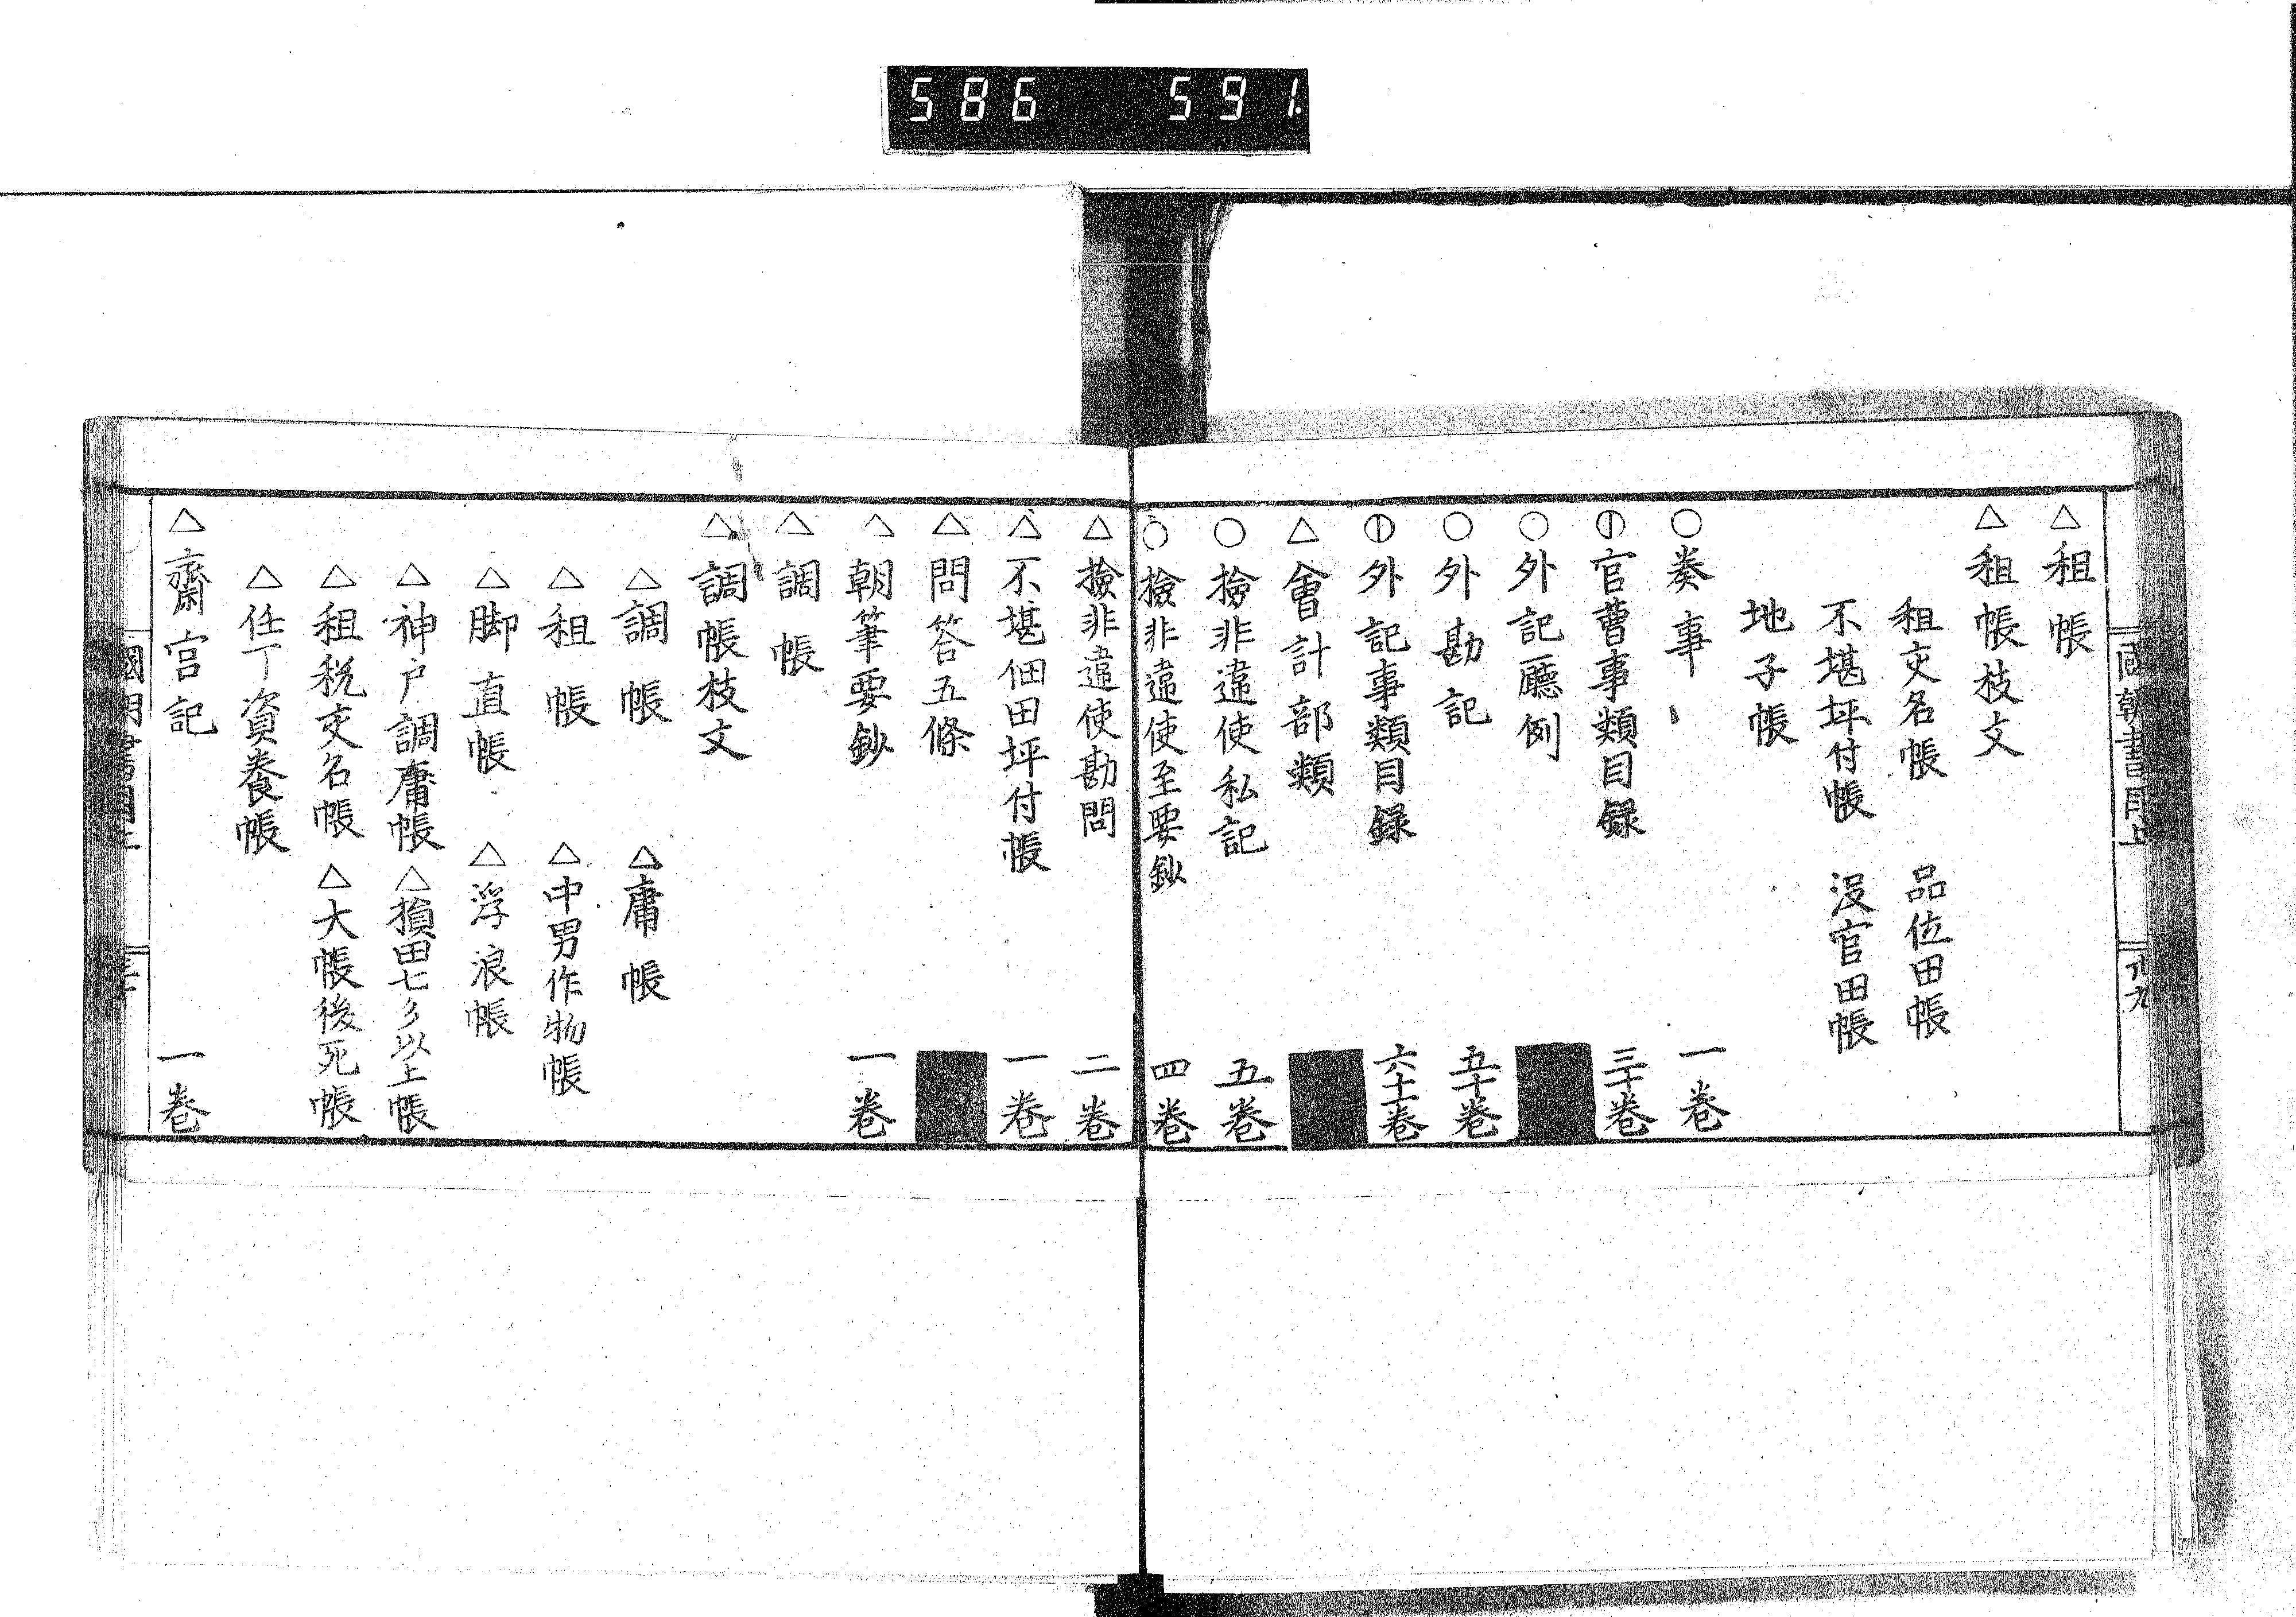 586 591
國朝書目上
廿九
△租帳
△租帳枝文
租交名帳 品位田帳
不堪坪付帳 沒官田帳
地子帳
○奏事 一卷
官曹事類目録 三十卷
○外記廳例
○外勘記 五十卷
外記事類目録 六十一卷
△會計部類
○撿非違使私記 五卷
○撿非違使至要鈔 四卷
△撿非違使勘問 二卷
△不堪佃田坪付帳 一卷
△問答五條
△朝筆要鈔 一卷
△調帳
△調帳枝文
△調帳 △庸帳
△租帳 △中男作物帳
△脚直帳 △浮浪帳
△神戸調庸帳 △損田七分以上帳
△租税交名帳 △大帳後死帳
△仕丁資養帳
△齋宮記 一卷